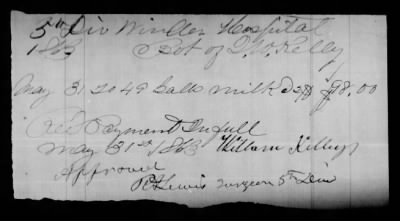 5th Div Winder Hospital
1863 Bot of T. W. Kelly
May 31 To 49 Galls milk $18.00
Rec Payment In full
May 31st 1863 William Kelley
Approved
R Lewis Surgeon 5th Div